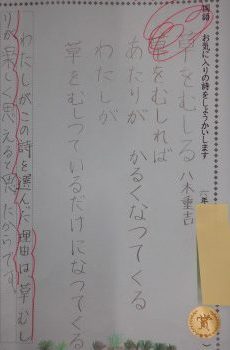 お気に入りの詩をしょうかいします
草をむしる
八木重吉
草をむしれば
あたりが かるくなつてくる
わたしが
草をむしつているだけになつてくる
わたしがこの詩を選んだ理由は、草むし
りが楽しく思えると思ったからです。